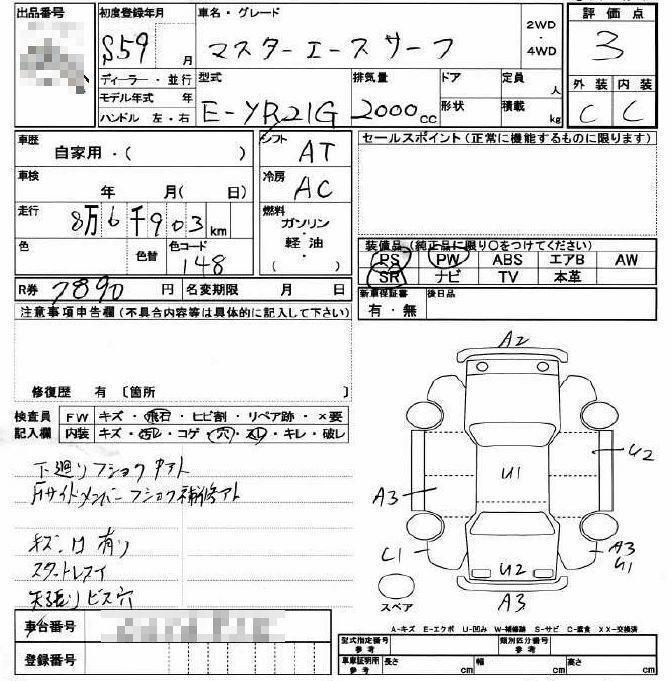 出品番号 初度登録年月 車名・グレード 評価点
S59 月 マスターエースサーフ 2WD・4WD 3
ディーラー・並行 型式 排気量 ドア 定員 外装 内装
モデル年式 年 E-YR21G 2000cc 人 C C
ハンドル 左・右 形状 積載 kg
車歴 自家用・( ) シフト AT セールスポイント(正常に機能するものに限ります)
車検 年 月( 日) 冷房 AC
走行 8万6千903km 燃料 ガソリン・軽油・( )
色 色替 色コード 148
装備品(純正品に限り○をつけてください)
PS PW ABS エアB AW
SR ナビ TV 本革
R券 7890円 名変期限 月 日 新車保証書 有・無 後日品
注意事項申告欄(不具合内容等は具体的に記入して下さい)
修復歴 有 〔箇所 〕
検査員記入欄 FW キズ・飛石・ヒビ割・リペア跡・×要
内装 キズ・汚レ・コゲ・穴・スレ・キレ・破レ
下廻りフショク
サイドメンバーフショク補修アト
キズ、凹 有り
天張りビス穴
A2
U2
U1
A3
C1
A3
U1
U2
A3
スペア
A-キズ E-エクボ U-凹み W-補修跡 S-サビ C-腐食 XX-交換済
車台番号 型式指定番号 参考 類別区分番号 参考
登録番号 車庫証明用 参考 長さ cm 幅 cm 高さ cm